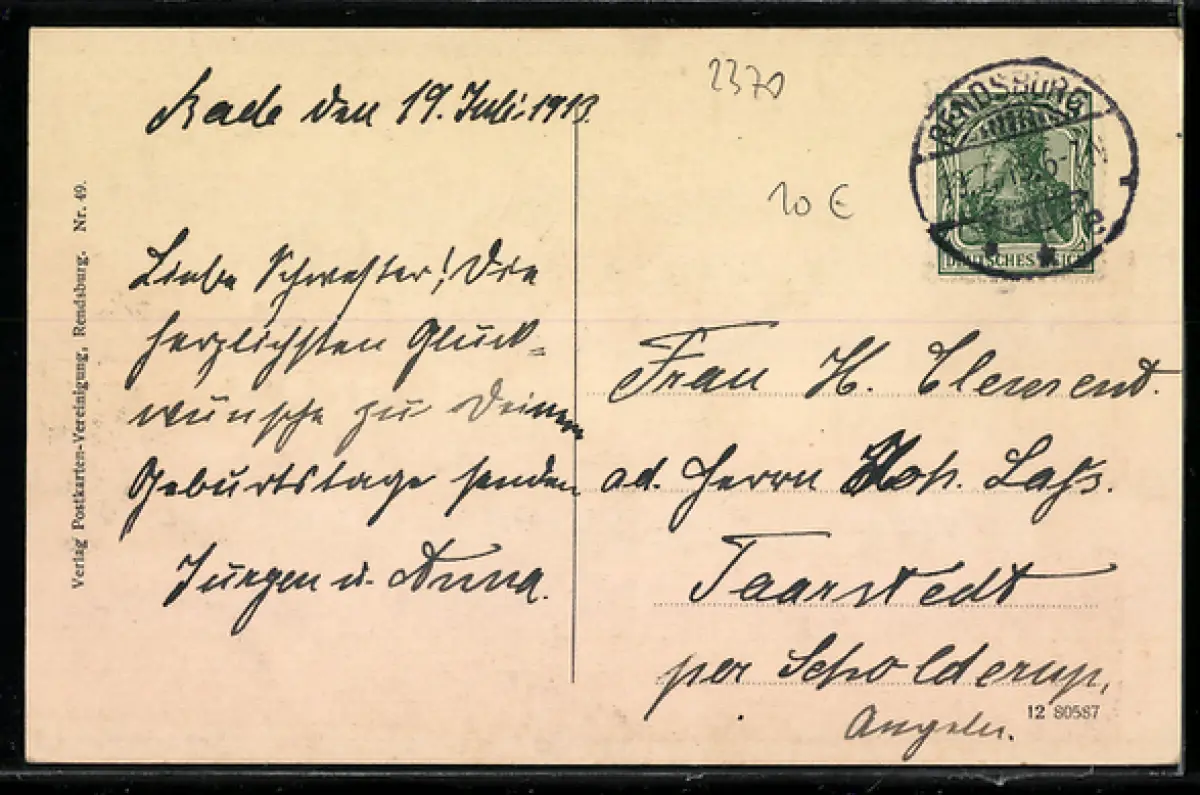 Rade den 19. Juli 1913.
Liebe Schwester! Die
herzlichsten Glück-
wünsche zu Deinem
Geburtstage senden
Jürgen u. Anna.
2370
10 €
RENDSBURG
DEUTSCHES REICH
Frau H. Clement.
ad. Herrn Joh. Laß.
Taarstedt
per Scholderup,
Angeln.
12 80587
Verlag Postkarten-Vereinigung, Rendsburg. Nr. 49.